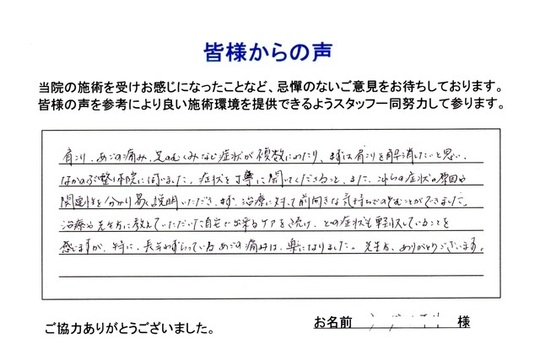 皆様からの声
当院の施術を受けお感じになったことなど、忌憚のないご意見をお待ちしております。
皆様の声を参考により良い施術環境を提供できるようスタッフ一同努力して参ります。
肩こり、あごの痛み、足のむくみなど症状が複数にわたり、まずは肩こりを解消したいと思い、
なかのぶ整体院に伺いました。症状を丁寧に聞いてくださること、また、これらの症状の原因や
関連性を分かり易く説明いただき、まず、治療に対して前向きな気持ちでのぞむことができました。
治療や先生方に教えていただいた自宅で出来るケアを続け、どの症状も軽減していることを
感じますが、特に、長年わずらっているあごの痛みは、楽になりました。先生方、ありがとうございます。
お名前 様
ご協力ありがとうございました。